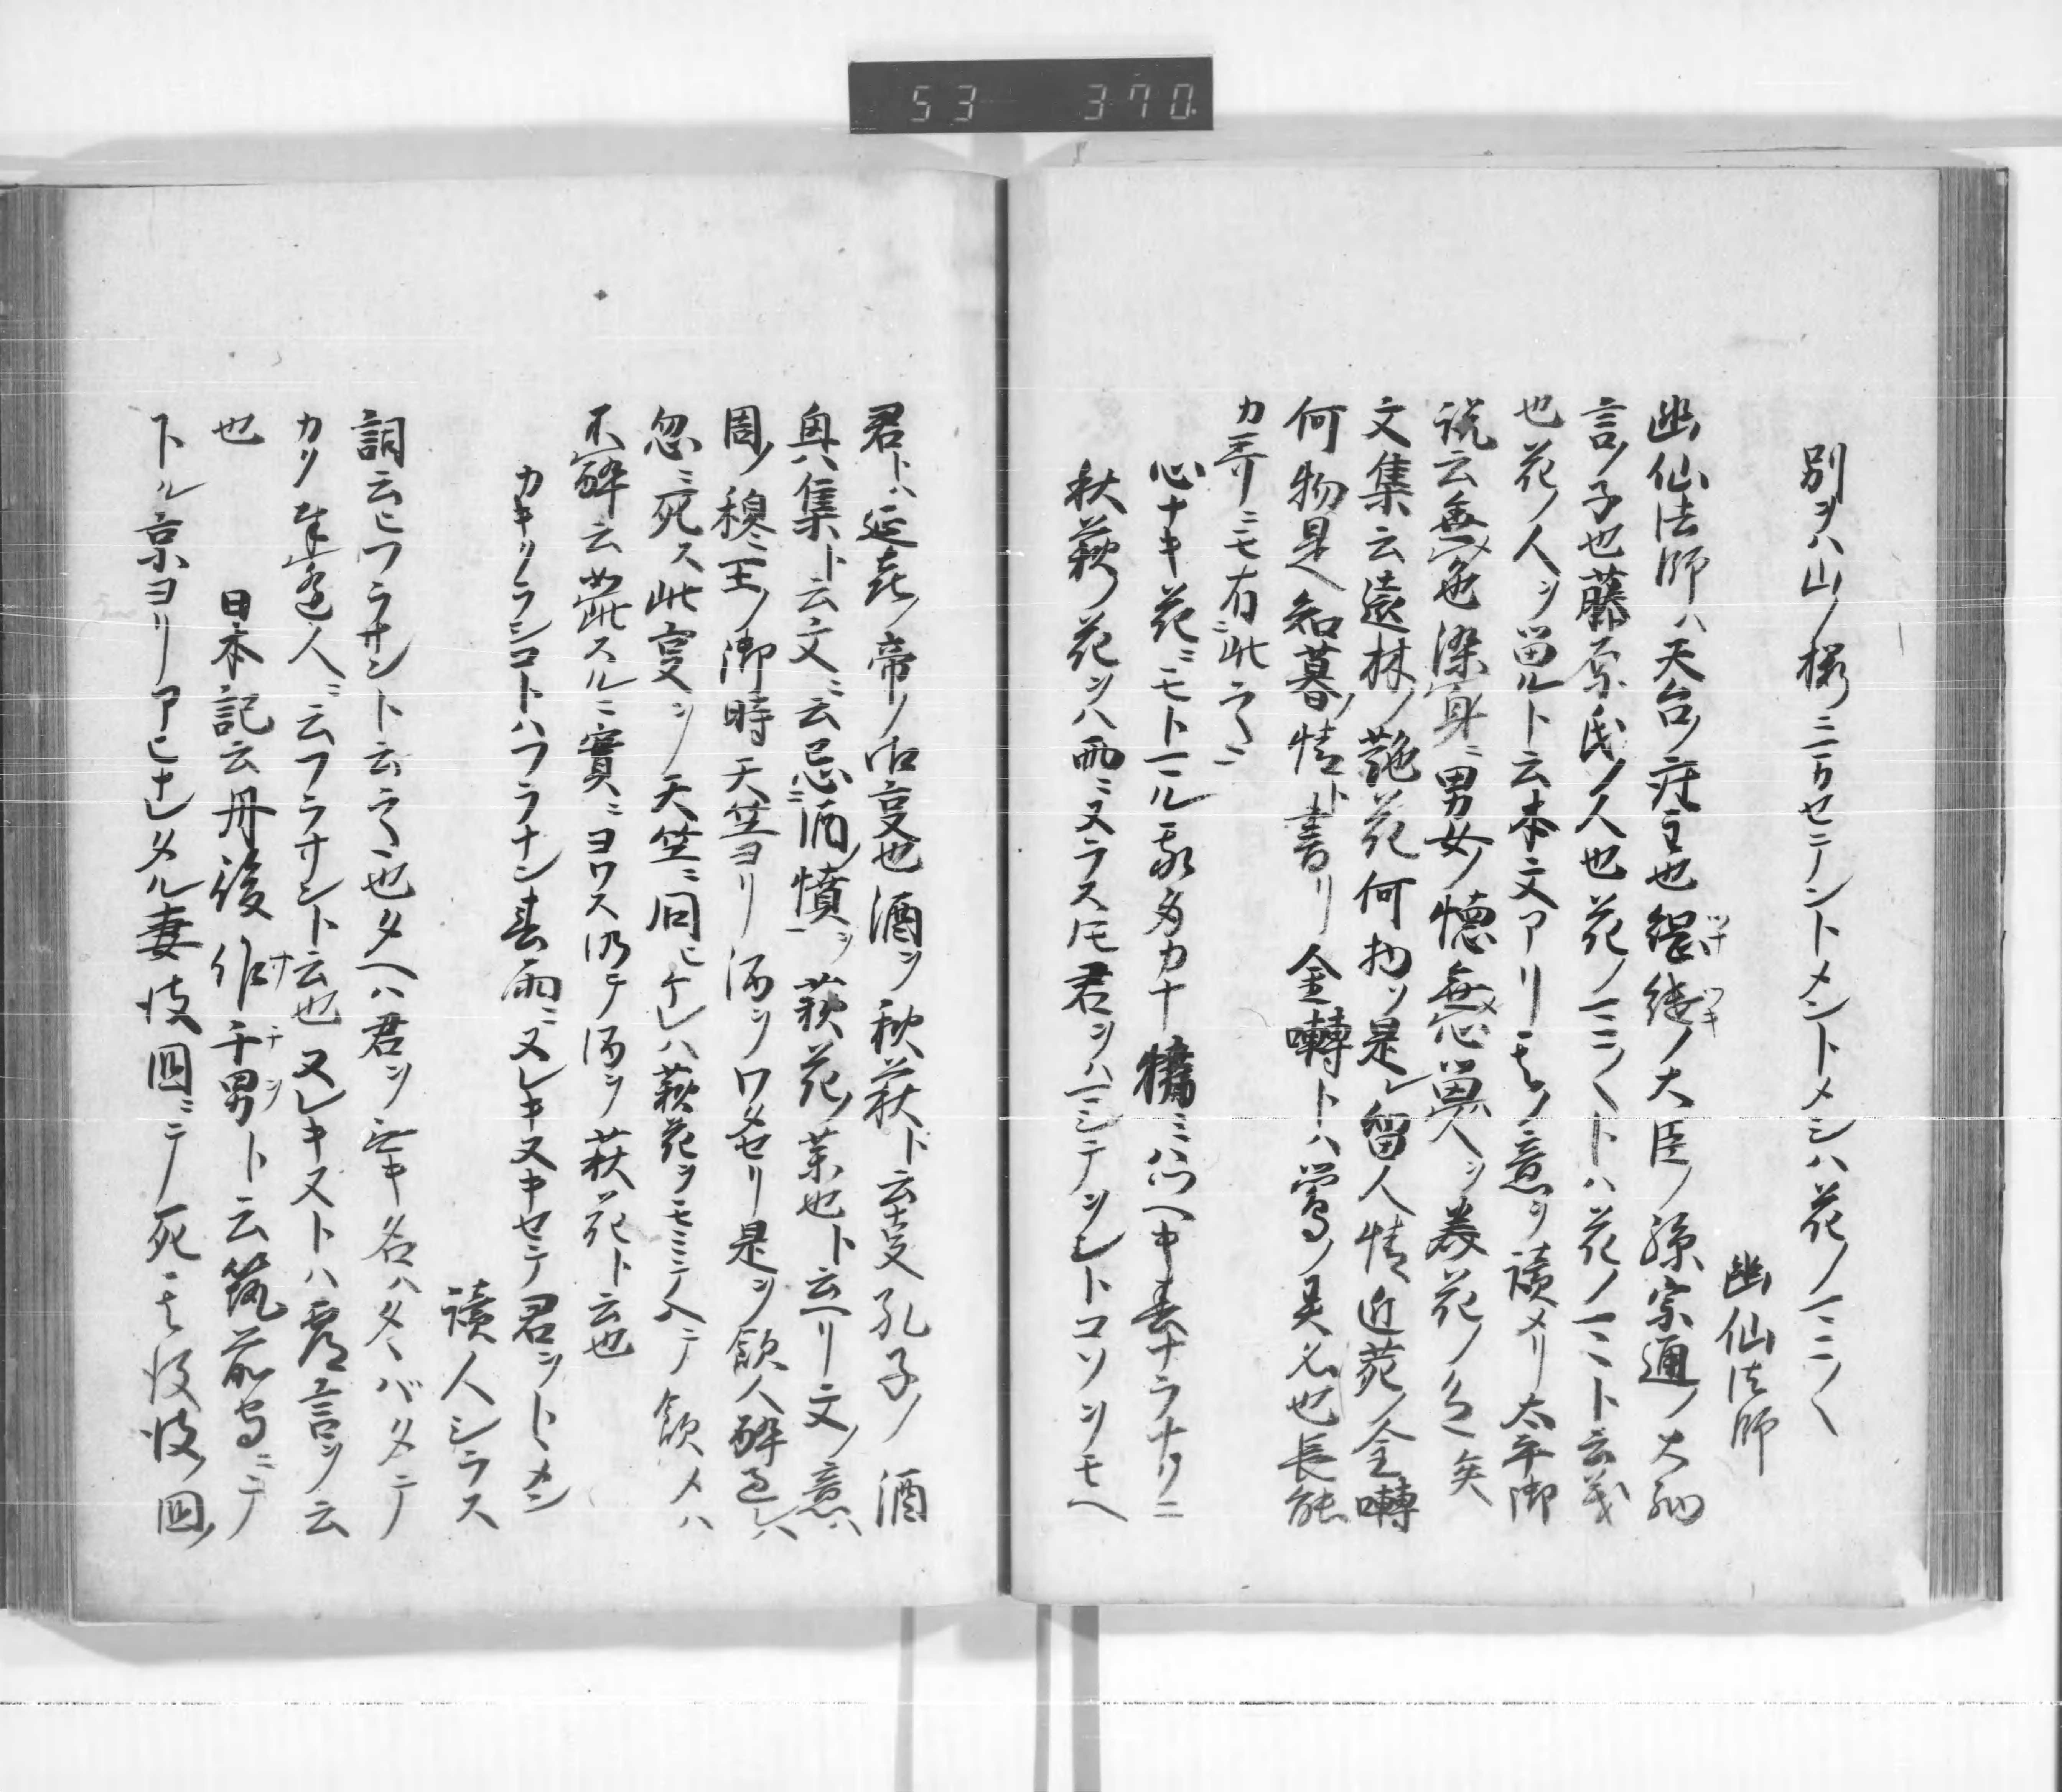 53 370
別ヲハ山ノ桜ニマカセテントメントメシハ花ノマニ〱
幽仙法師
幽仙法師ハ天台座主也継縄ノ大臣ノ孫宗通ノ大納
言ノ子也藤原氏ノ人也花ノマニ〱トハ花ノマヽト云義
也花ノ人ヲ留ルト云本文アリ其ノ意ヲ読メリ太平御
説云無色染身男女ノ徳無心留人ヲ春花ノ色矣
文集云遠林ノ艶花何物ソ是レ留人情近苑ノ金囀
何物是知暮ノ情ト書リ金囀トハ鶯ノ異名也長能
カ哥ニモ有此
心ナキ花ニモトマル ナカ ミハ ヘキ春ナラナクニ
秋萩ノ花ヲハ雨ニヌラスモ君ヲハマシテヲシトコソヲモヘ
君トハ延喜ノ帝ノ御事也酒ヲ秋萩ト云事孔子ノ酒
興集ト云文ニ云忌酒憤ヲ萩花ノ葉也ト云ヘリ文ノ意ハ
周ノ穆王ノ御時天竺ヨリ酒ヲワタセリ是ヲ飲人酔過レハ
忽ニ死ス此事ヲ天竺ニ問ヒケレハ萩花ヲモミテ入テ飲メハ
不酔云 此スルニ実ニヨワス仍テ酒ヲ萩花ト云也
カキクラシコトハフラナン春雨ニヌレキヌキセテ君ヲトヽメン
読人シラス
詞云ヒフラサント云 也タヘハ君ヲ キ名ハタヽバタテ
カク 人ニ云フラサント云也ヌレキヌトハ虚言ヲ云
也 日本記云丹後佐千男ト云筑前守ニテ
下ル京ヨリアヒナレタル妻彼国ニテ死其後彼国